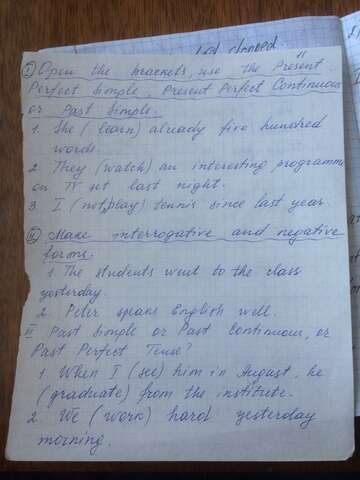 I Open the brackets, use the Present
Perfect Simple, Present Perfect Continuous
or Past Simple.
1. She (learn) already five hundred
words.
2. They (watch) an interesting programme
on TV set last night.
3. I (not, play) tennis since last year.
II Make interrogative and negative
forms.
1. The students went to the class
yesterday.
2. Peter speaks English well.
III Past Simple or Past Continuous, or
Past Perfect Tense?
1. When I (see) him in August, he
(graduate) from the institute.
2. We (work) hard yesterday
morning.